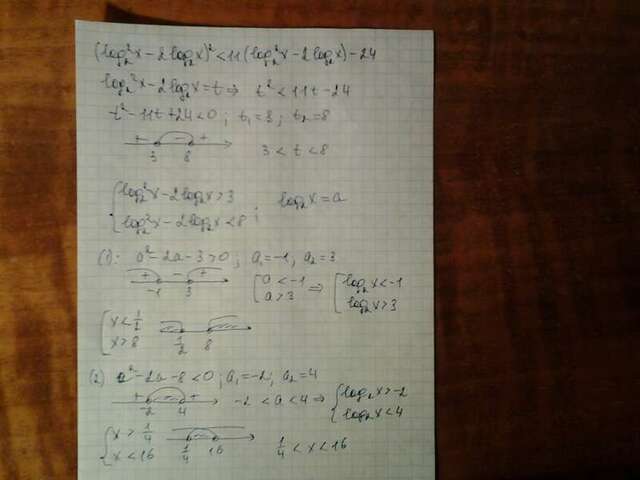 (log₂²x − 2log₂x)² < 11(log₂²x − 2log₂x) − 24
log₂²x − 2log₂x = t ⇒ t² < 11t − 24
t² − 11t + 24 < 0 ; t₁ = 3 ; t₂ = 8
+ − +
3 8 3 < t < 8
{ log₂²x − 2log₂x > 3
{ log₂²x − 2log₂x < 8 ; log₂x = a
(1): a² − 2a − 3 > 0 ; a₁ = −1, a₂ = 3
+ − +
−1 3 [ a < −1 ⇒ [ log₂x < −1
[ a > 3 [ log₂x > 3
[ x < 1/2
[ x > 8 1/2 8
(2) a² − 2a − 8 < 0 ; a₁ = −2 ; a₂ = 4
+ − +
−2 4 −2 < a < 4 ⇒ { log₂x > −2
{ log₂x < 4
{ x > 1/4
{ x < 16 1/4 16 1/4 < x < 16